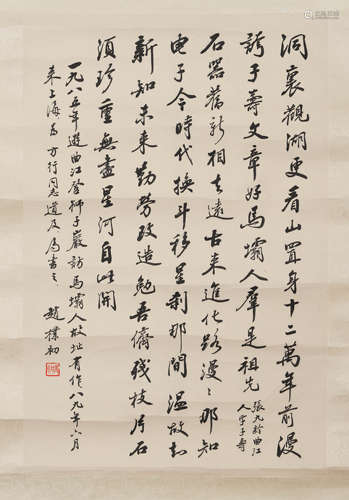 洞裏觀湖更看山置身十二萬年前漫
誇子壽文章好馬壩人羣是祖先 張九齡曲江
人字子壽
石器舊新相去遠古來進化路漫漫那知
电子今時代換斗移星刹那間温故知
新知未来勤勞改造勉吾儕残枝片石
須珍重無盡星河自此開
一九八五年遊曲江登獅子巖訪馬壩人故址有作八九年六月
来上海为方行同志道及属書之
趙樸初